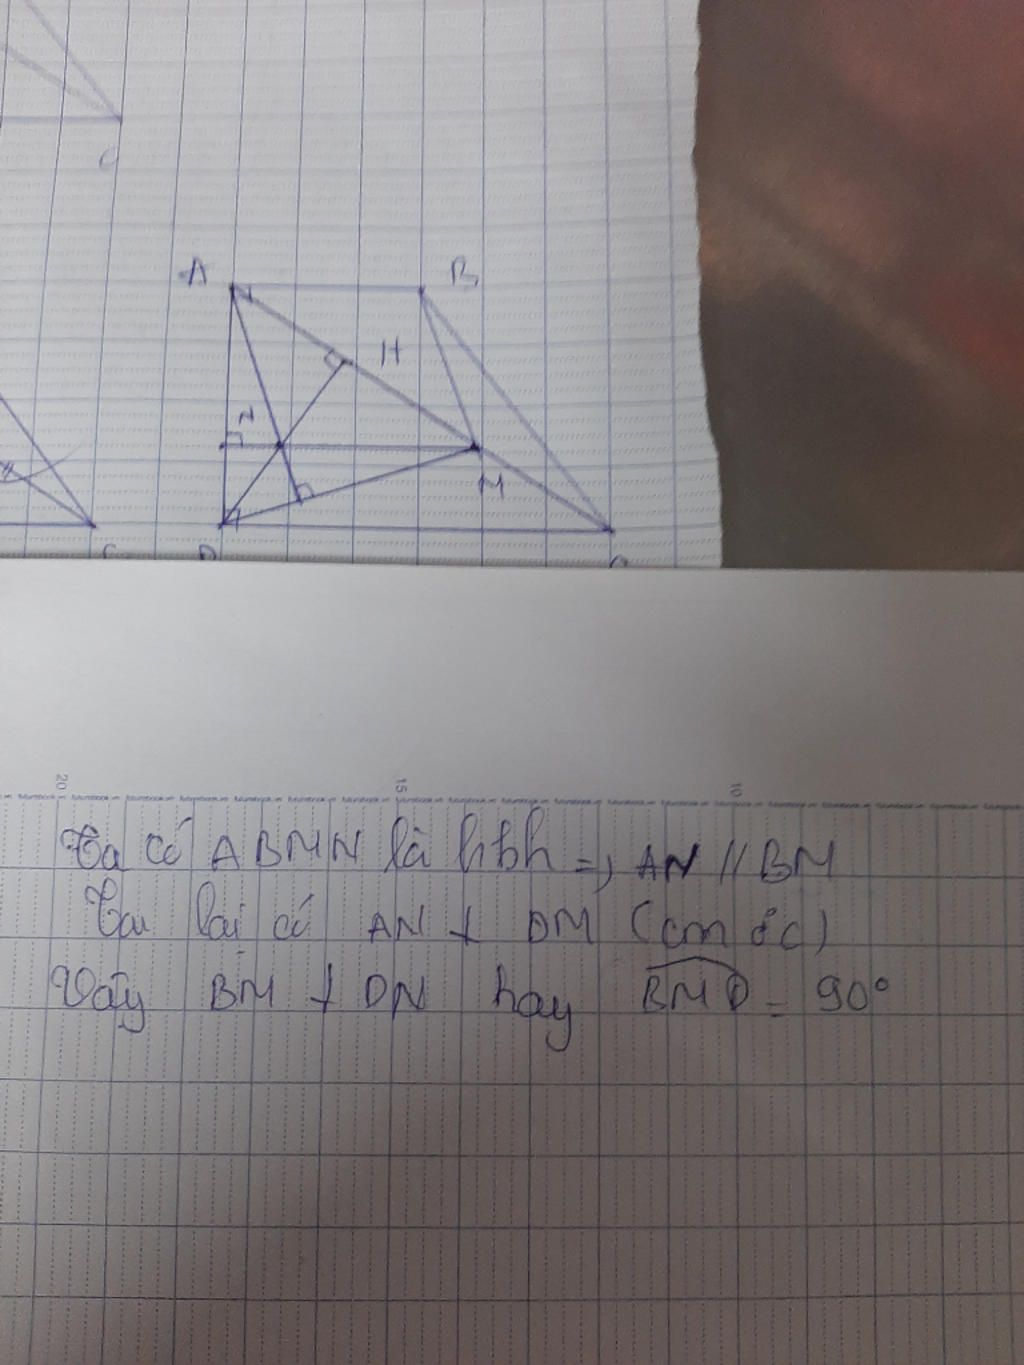 C
A
B
H
N
M
C
D
C
20
15
10
Ta có ABMN là hbh => AN // BM
Ta lại có AN ⊥ DM (cm đc)
Vậy BM ⊥ DN hay BMD = 90°